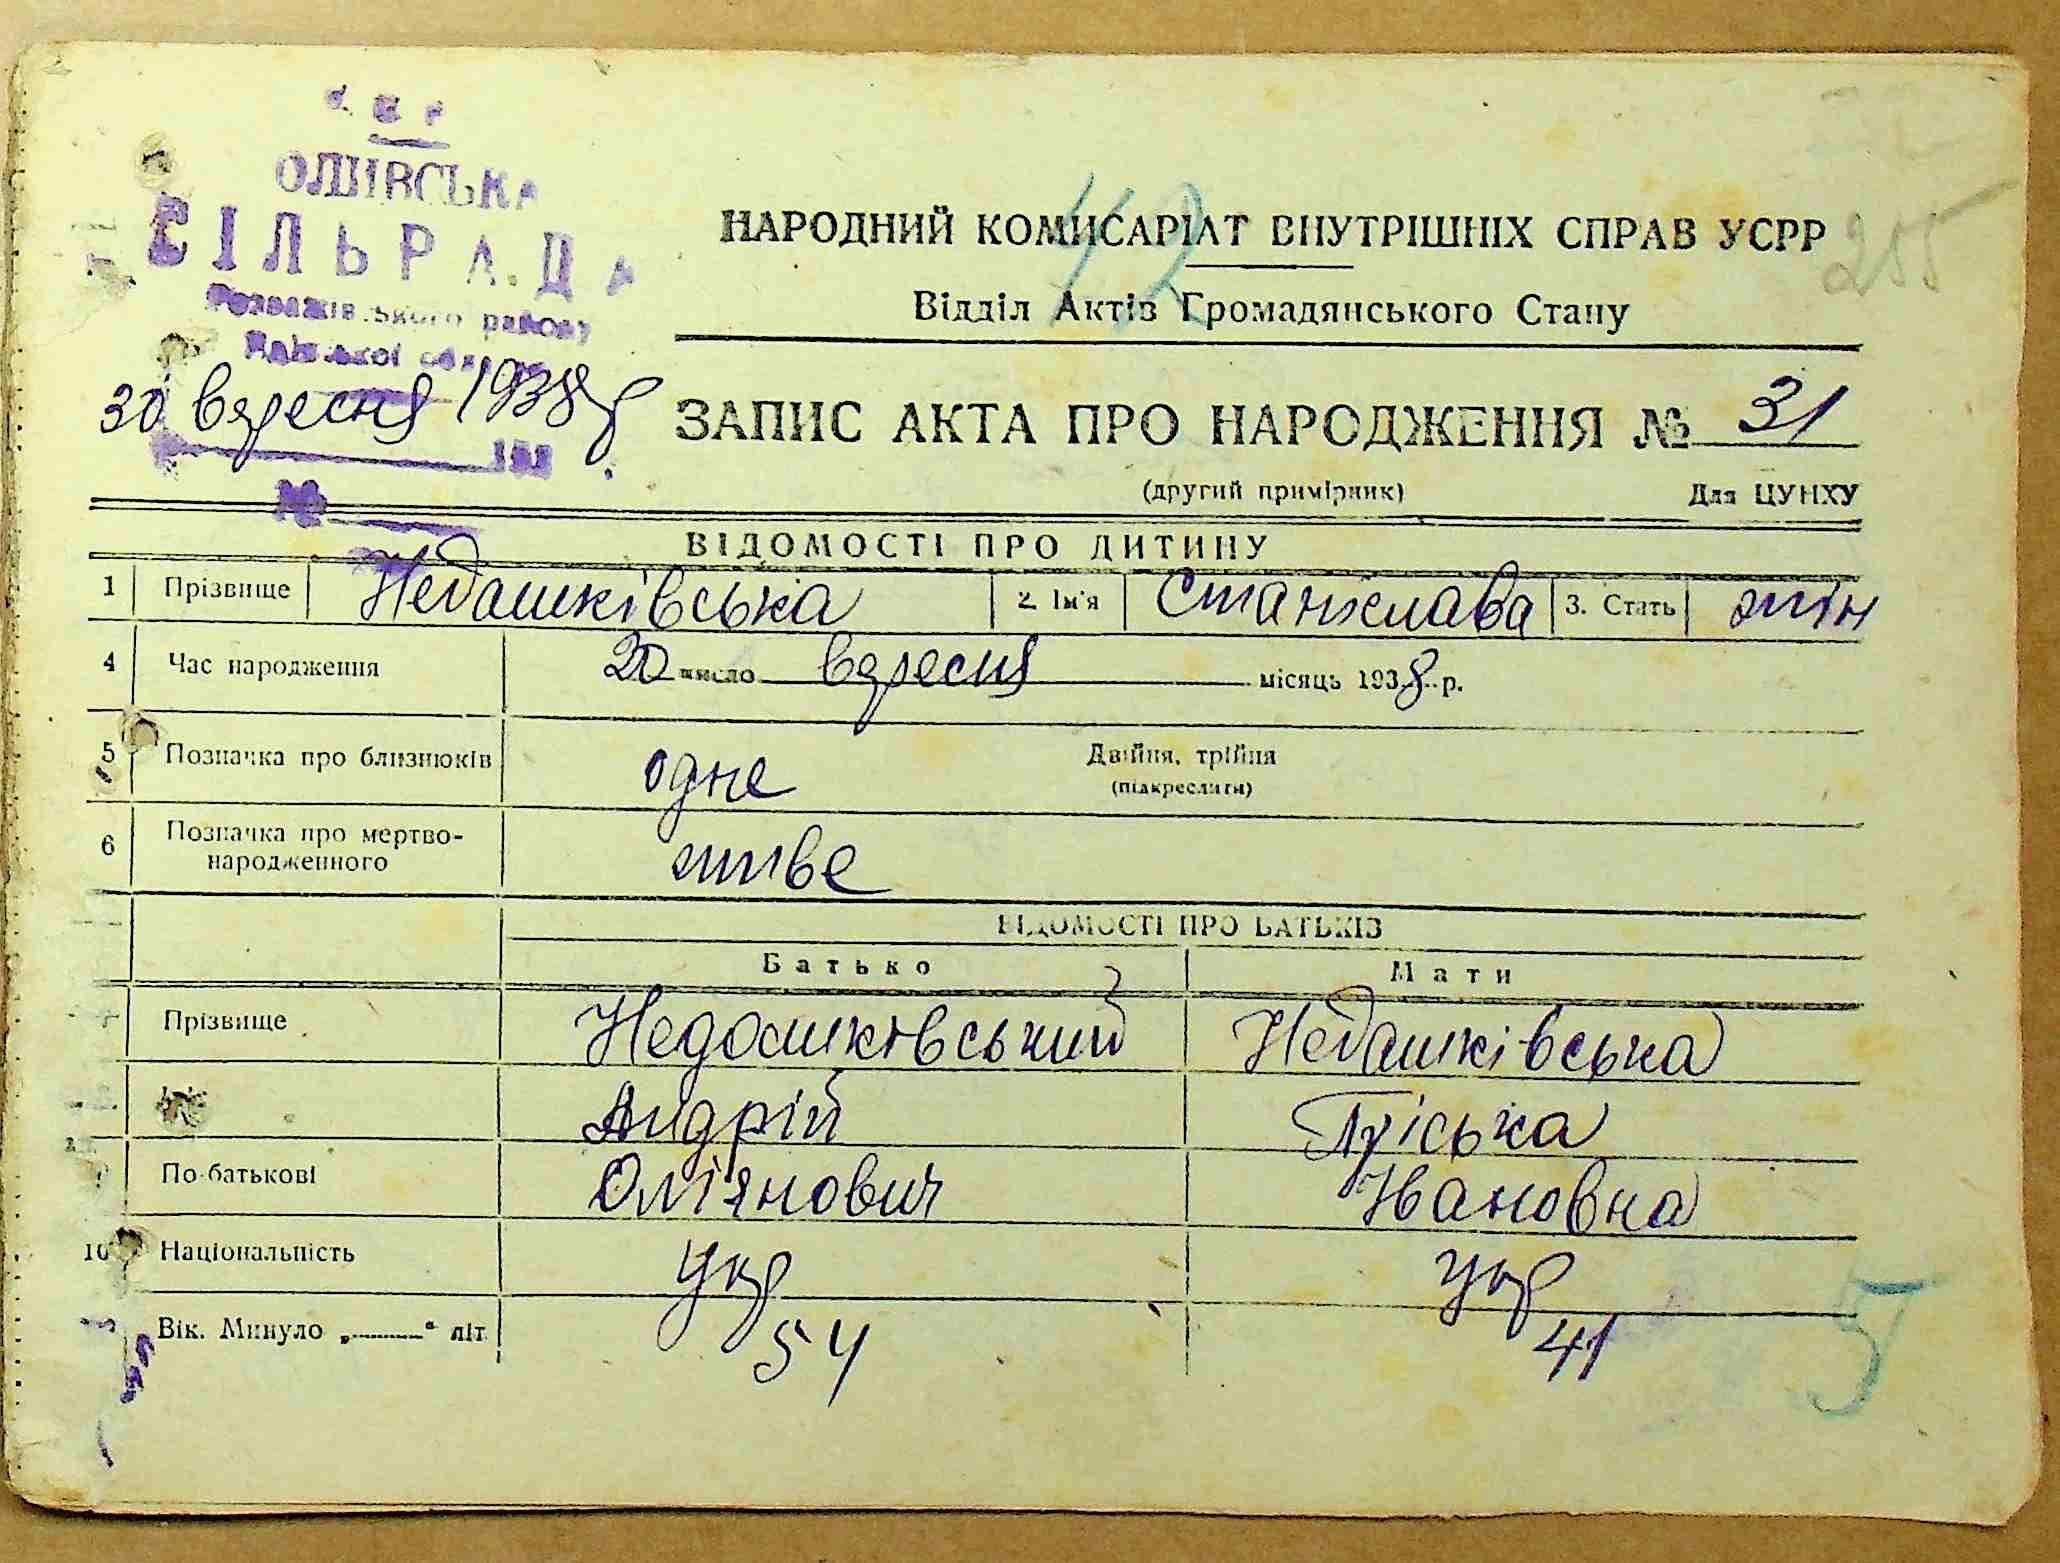 ОЛИВСЬКА
СІЛЬРАДА
Розважівського району
30 вересня 1938 р.
42
255
НАРОДНИЙ КОМИСАРІАТ ВНУТРІШНІХ СПРАВ УСРР
Відділ Актів Громадянського Стану
ЗАПИС АКТА ПРО НАРОДЖЕННЯ № 31
(другий примірник) Для ЦУНХУ
ВІДОМОСТІ ПРО ДИТИНУ
1 Прізвище Недашківська 2. Ім'я Станіслава 3. Стать жін
4 Час народження 20 число вересня місяць 1938 р.
5 Позначка про близнюків одне Двійня, трійня
(підкреслити)
6 Позначка про мертво-
народженного живе
ВІДОМОСТІ ПРО БАТЬКІВ
Батько Мати
Прізвище Недошківський Недашківська
Андрій
По-батькові Омʼянович Івановна
10 Національність укр укр
Вік. Минуло „ “ літ 54 41
5